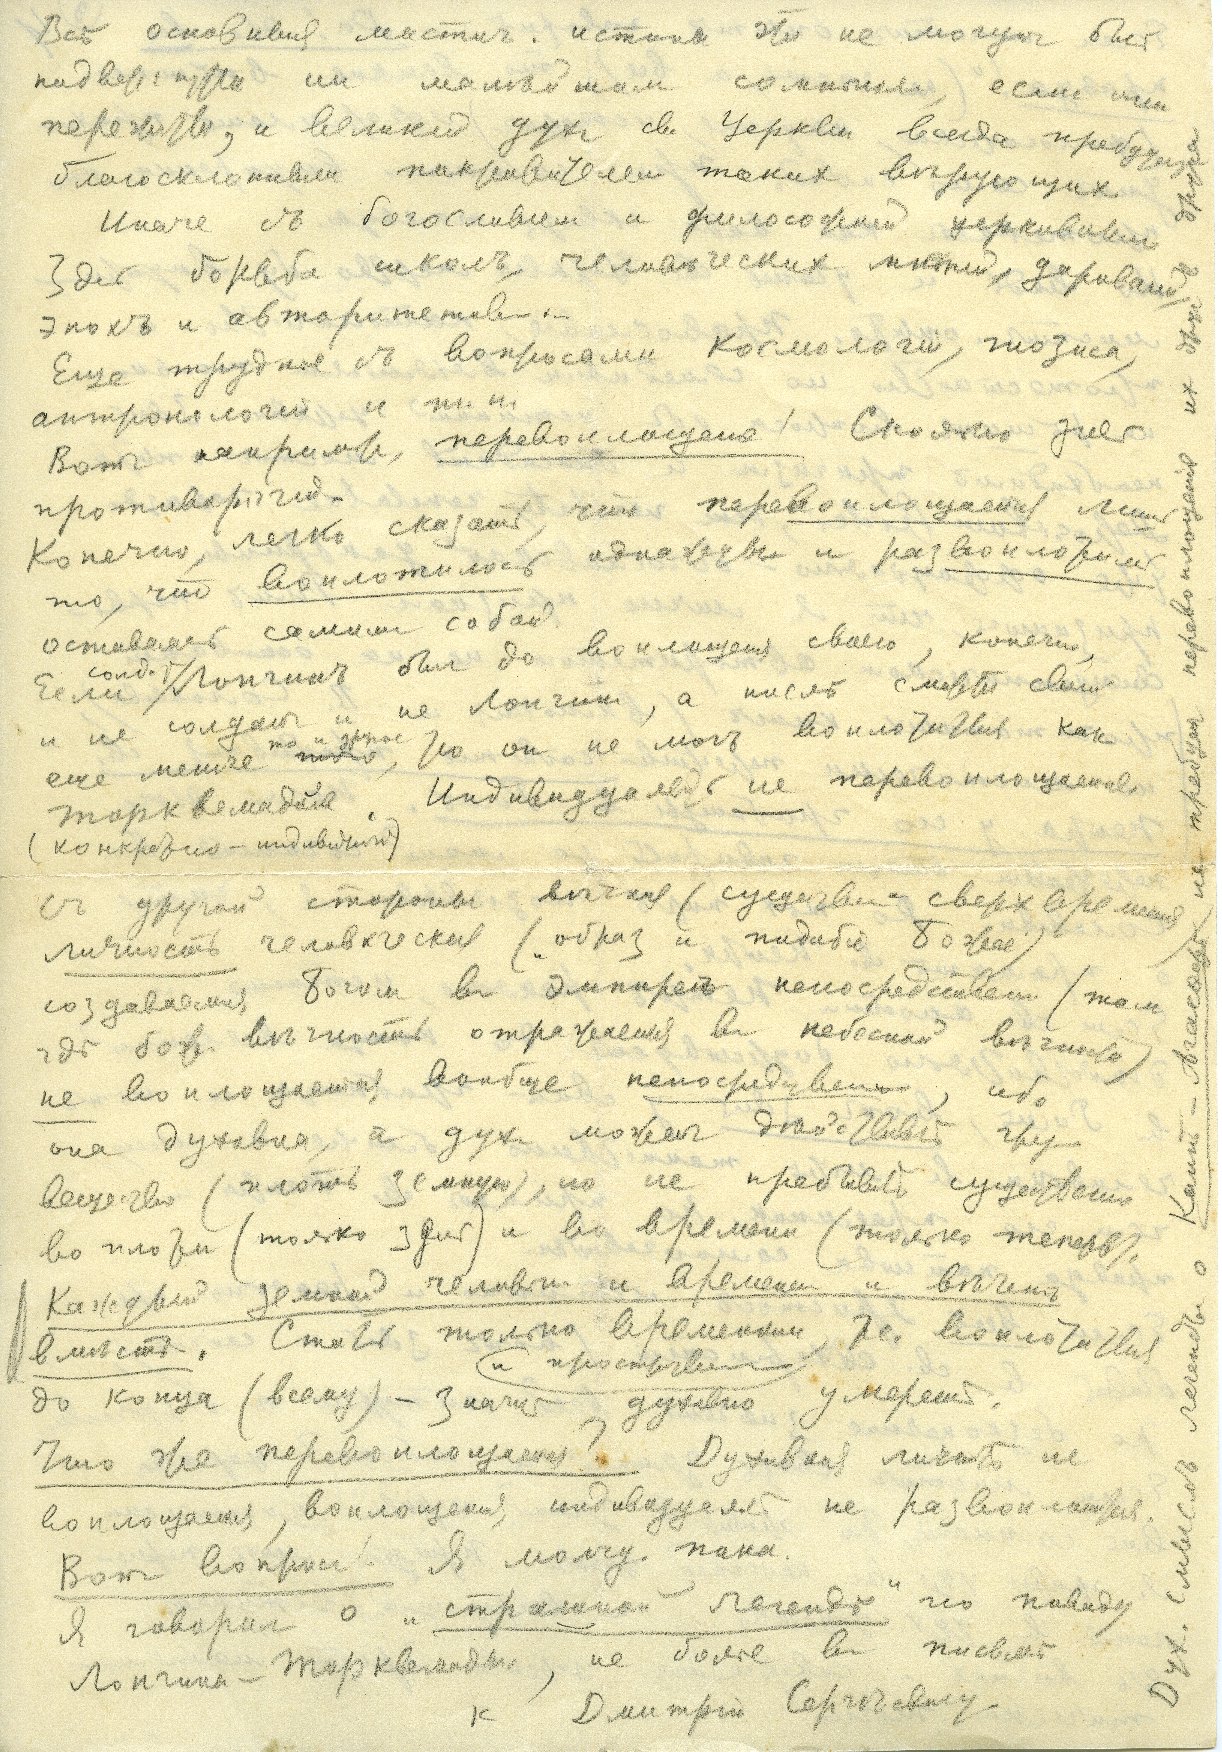 Всѣ основныя мистич. истины эти не могутъ быть
подвергнуты ни малѣйшимъ сомнѣн., если они
пережиты, и великій духъ св. Церкви всегда пребудетъ
благосклоннымъ покровителемъ такихъ вѣрующихъ
Иначе съ богословіем и философіей церковными
Здѣсь борьба школъ, человѣческихъ мнѣній, дарованій,
эпохъ и авторитетовъ...
Еще труднѣе съ вопросами космологіи, теозиса,
антропологіи и т. п.
Вотъ напримѣръ, перевоплощеніе! Сколько здѣсь
противорѣчій.
Конечно, легко сказать, что перевоплощается лишь
то, что воплотилось однажды и развоплотилось
оставаясь самимъ собой.
Если солдатъ Лонгинъ былъ до воплощенія своего, конечно,
и не солдатъ и не Лонгинъ, а послѣ смерти своей
еще меньше то и другое, то он не могъ воплотиться какъ
Торквемадой. Индивидуальность не перевоплощается.
(конкретно-индивид.)
Съ другой стороны вѣчная (существенно сверхвременная)
личность человѣческая („образ и подобіе Божіе“)
создаваемая Богомъ въ Эмпиреѣ непосредственно (тамъ
гдѣ бож. вѣчность отражается въ небесной вѣчности)
не воплощается вообще непосредственно, ибо
она духовна, а духъ можетъ дѣйствовать чрезъ
вещество (плоть земную), но не пребывать существенно
во плоти (только здѣсь) и во времени (только теперь).
Каждый земной человѣкъ и времененъ и вѣченъ
вмѣстѣ. Стать только временнымъ и пространственнымъ, т.е. воплотиться
до конца (всему) – значитъ духовно умереть.
Что же перевоплощается? Духовная личность не
воплощается, воплощенная индивидуальность не развоплощается.
Вотъ вопросъ! Я молчу пока.
Я говорилъ о „странной легендѣ“ по поводу
Лонгина-Торквемады, не болѣе въ письмѣ
к Дмитрію Сергѣевичу.
Дух. смыслъ легенды о Каинѣ – Агасферѣ не требуетъ перевоплощенія их другъ въ друга